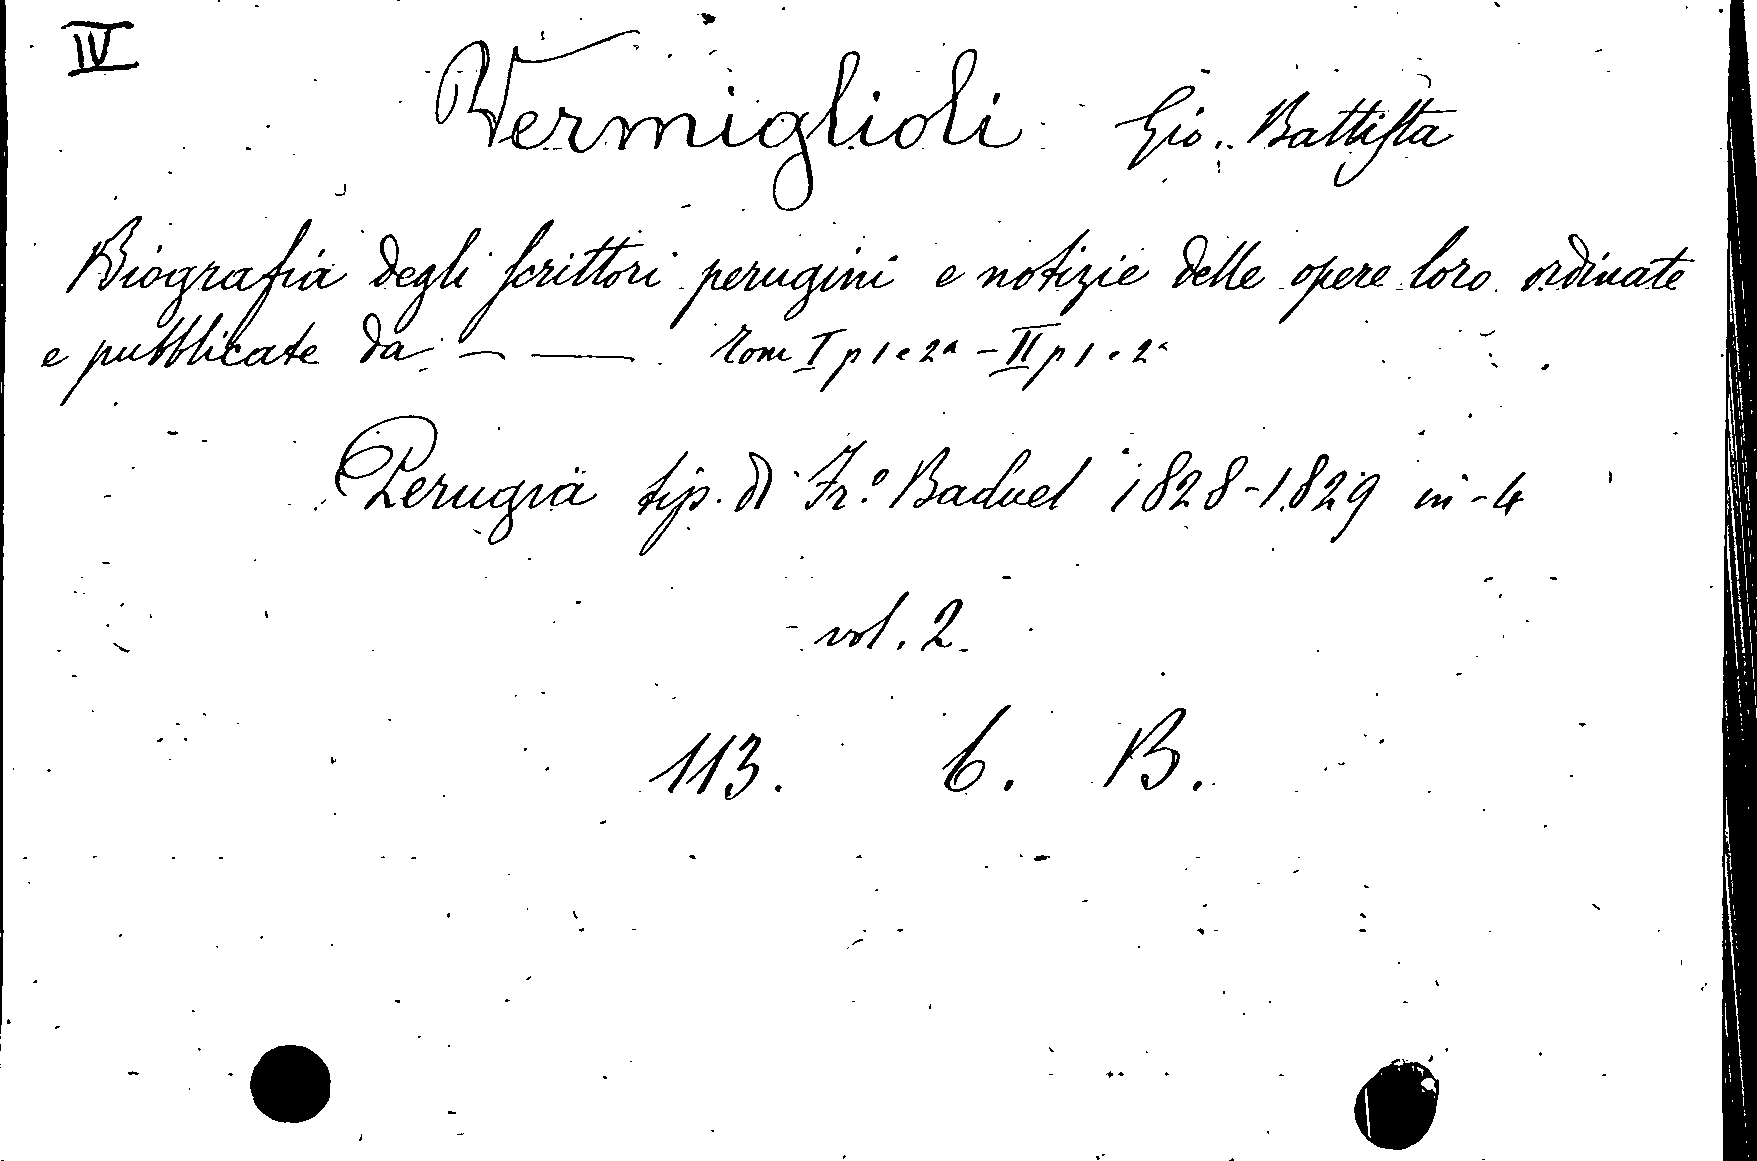 IV
Vermiglioli Gio. Battista
Biografia degli scrittori perugini e notizie delle opere loro ordinate
e pubblicate da — — Tom I p 1 e 2ª - II p 1 e 2ª
Perugia tip. di Fr.º Baduel 1828-1829 in-4
vol. 2.
113. 6. B.